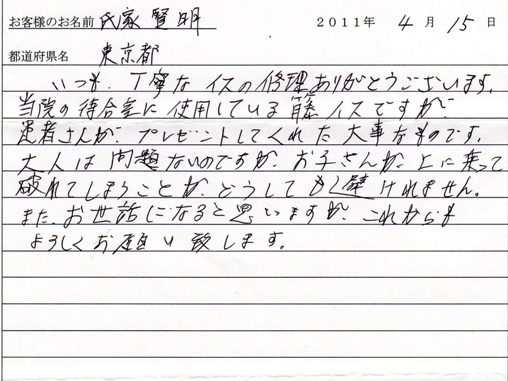 お客様のお名前 氏家賢明 2011年 4月 15日
都道府県名 東京都
いつも、丁寧なイスの修理ありがとうございます。
当院の待合室に使用している籐イスですが、
患者さんが、プレゼントしてくれた大事なものです。
大人は問題ないのですが、お子さんが、上に乗って
破れてしまうことが、どうしても避けれません。
また、お世話になると思いますが、これからも
よろしくお願い致します。